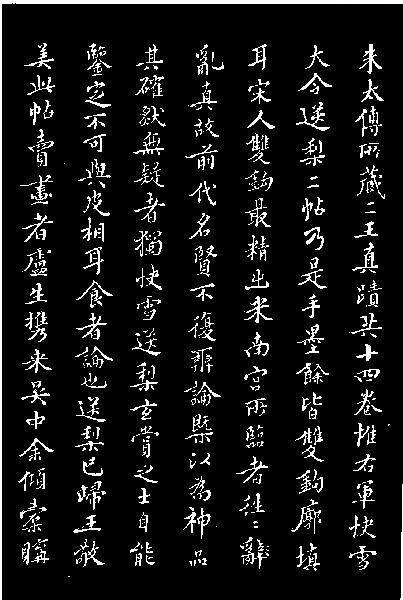 朱太傅所藏二王真蹟共十四卷惟右軍快雪
大令送梨二帖乃是手墨餘皆雙鉤廓填
耳宋人雙鉤最精出米南宮所臨者往〻
亂真故前代名賢不復辨論槩以為神品
其確然無疑者獨快雪送梨玄賞之士自能
鑒定不可與皮相耳食者論也送梨已歸王敬
美此帖賣畫者盧生攜來吳中余傾橐購